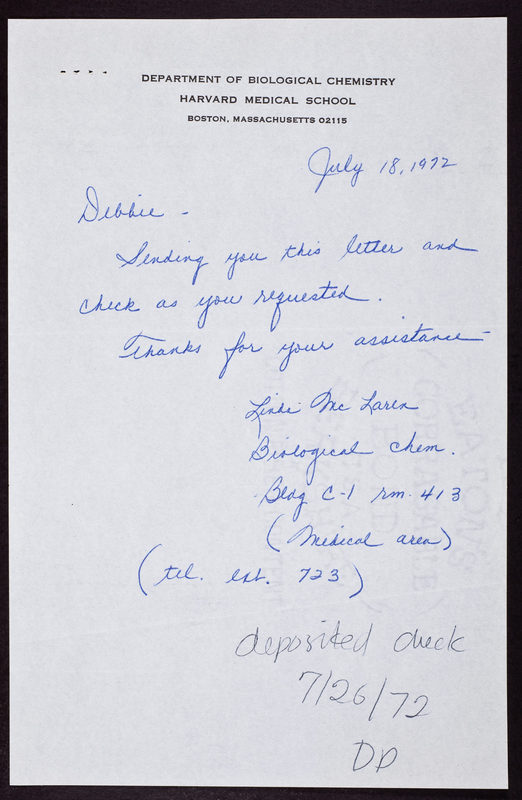 DEPARTMENT OF BIOLOGICAL CHEMISTRY
HARVARD MEDICAL SCHOOL
BOSTON, MASSACHUSETTS 02115
July 18, 1972
Debbie -
Sending you this letter and
check as you requested.
Thanks for your assistance -
Linda Mc Laren
Biological Chem.
Bldg C-1 rm. 413
(Medical area)
(tel. ext. 723)
deposited check
7/26/72
DD